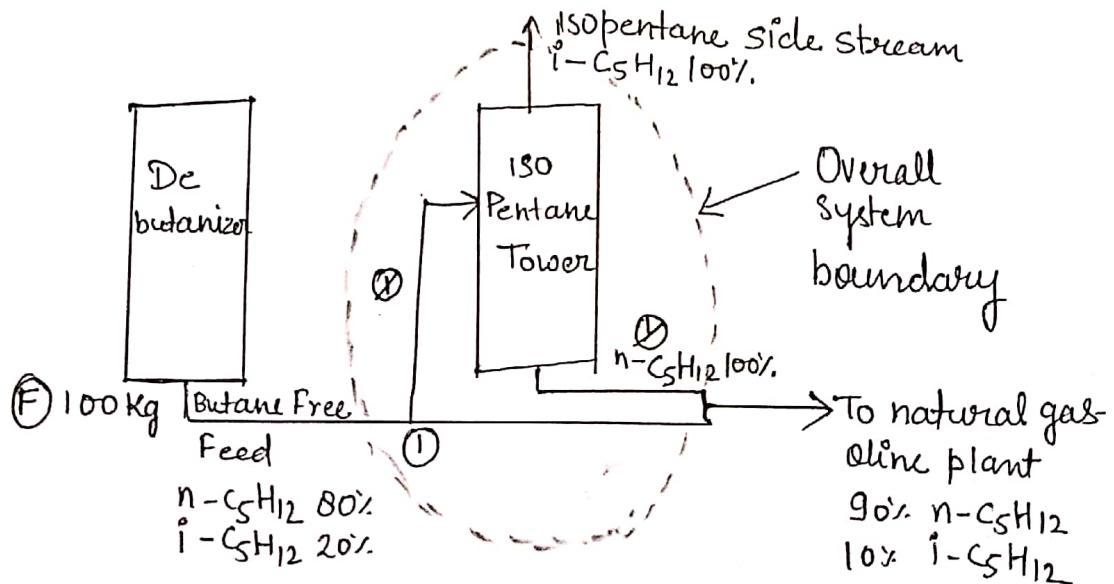 isopentane side stream
i-C5H12 100%.
De
butanizer
iso
Pentane
Tower
Overall
system
boundary
X
Y
n-C5H12 100%.
F 100 Kg
Butane Free
Feed
1
n-C5H12 80%
i-C5H12 20%
To natural gas-
oline plant
90% n-C5H12
10% i-C5H12